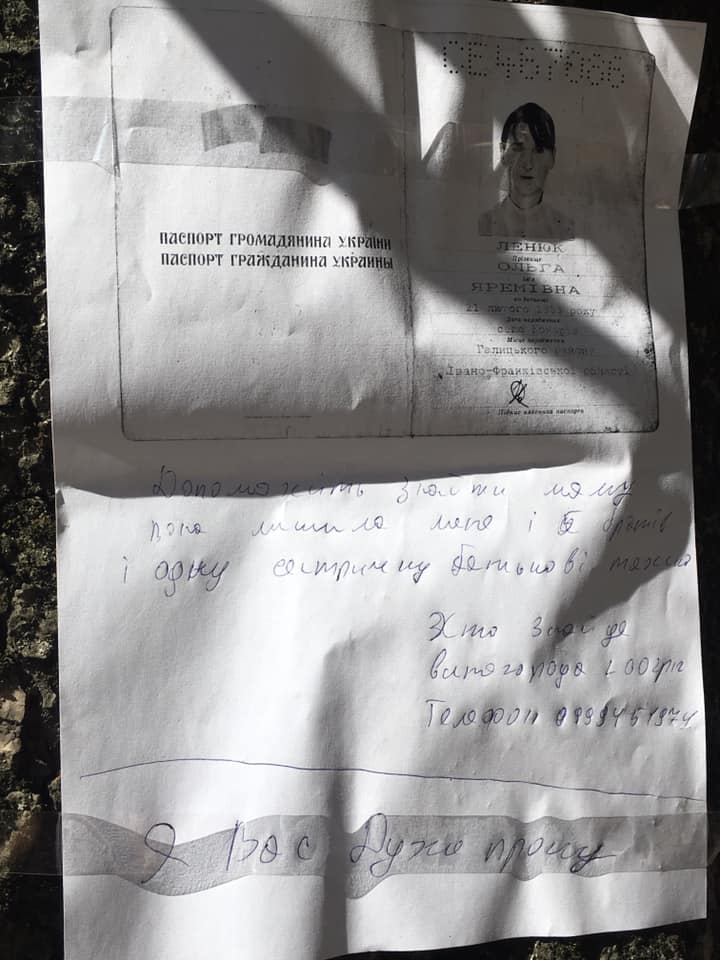 СЕ467066
ПАСПОРТ ГРОМАДЯНИНА УКРАЇНИ
ПАСПОРТ ГРАЖДАНИНА УКРАИНЫ
ЛЕНЮК
Прізвище
ОЛЬГА
Ім'я
ЯРЕМІВНА
по батькові
21 лютого року
Дата народження
село
Місце народження
Галицького району
Івано-Франківської області
Підпис власника паспорта
Допоможіть знайти маму
вона лишила мене і братів
і одну сестричку батькові
Хто знайде
винагорода 200грн
Телефон 0999451974
Я Вас Дуже прошу